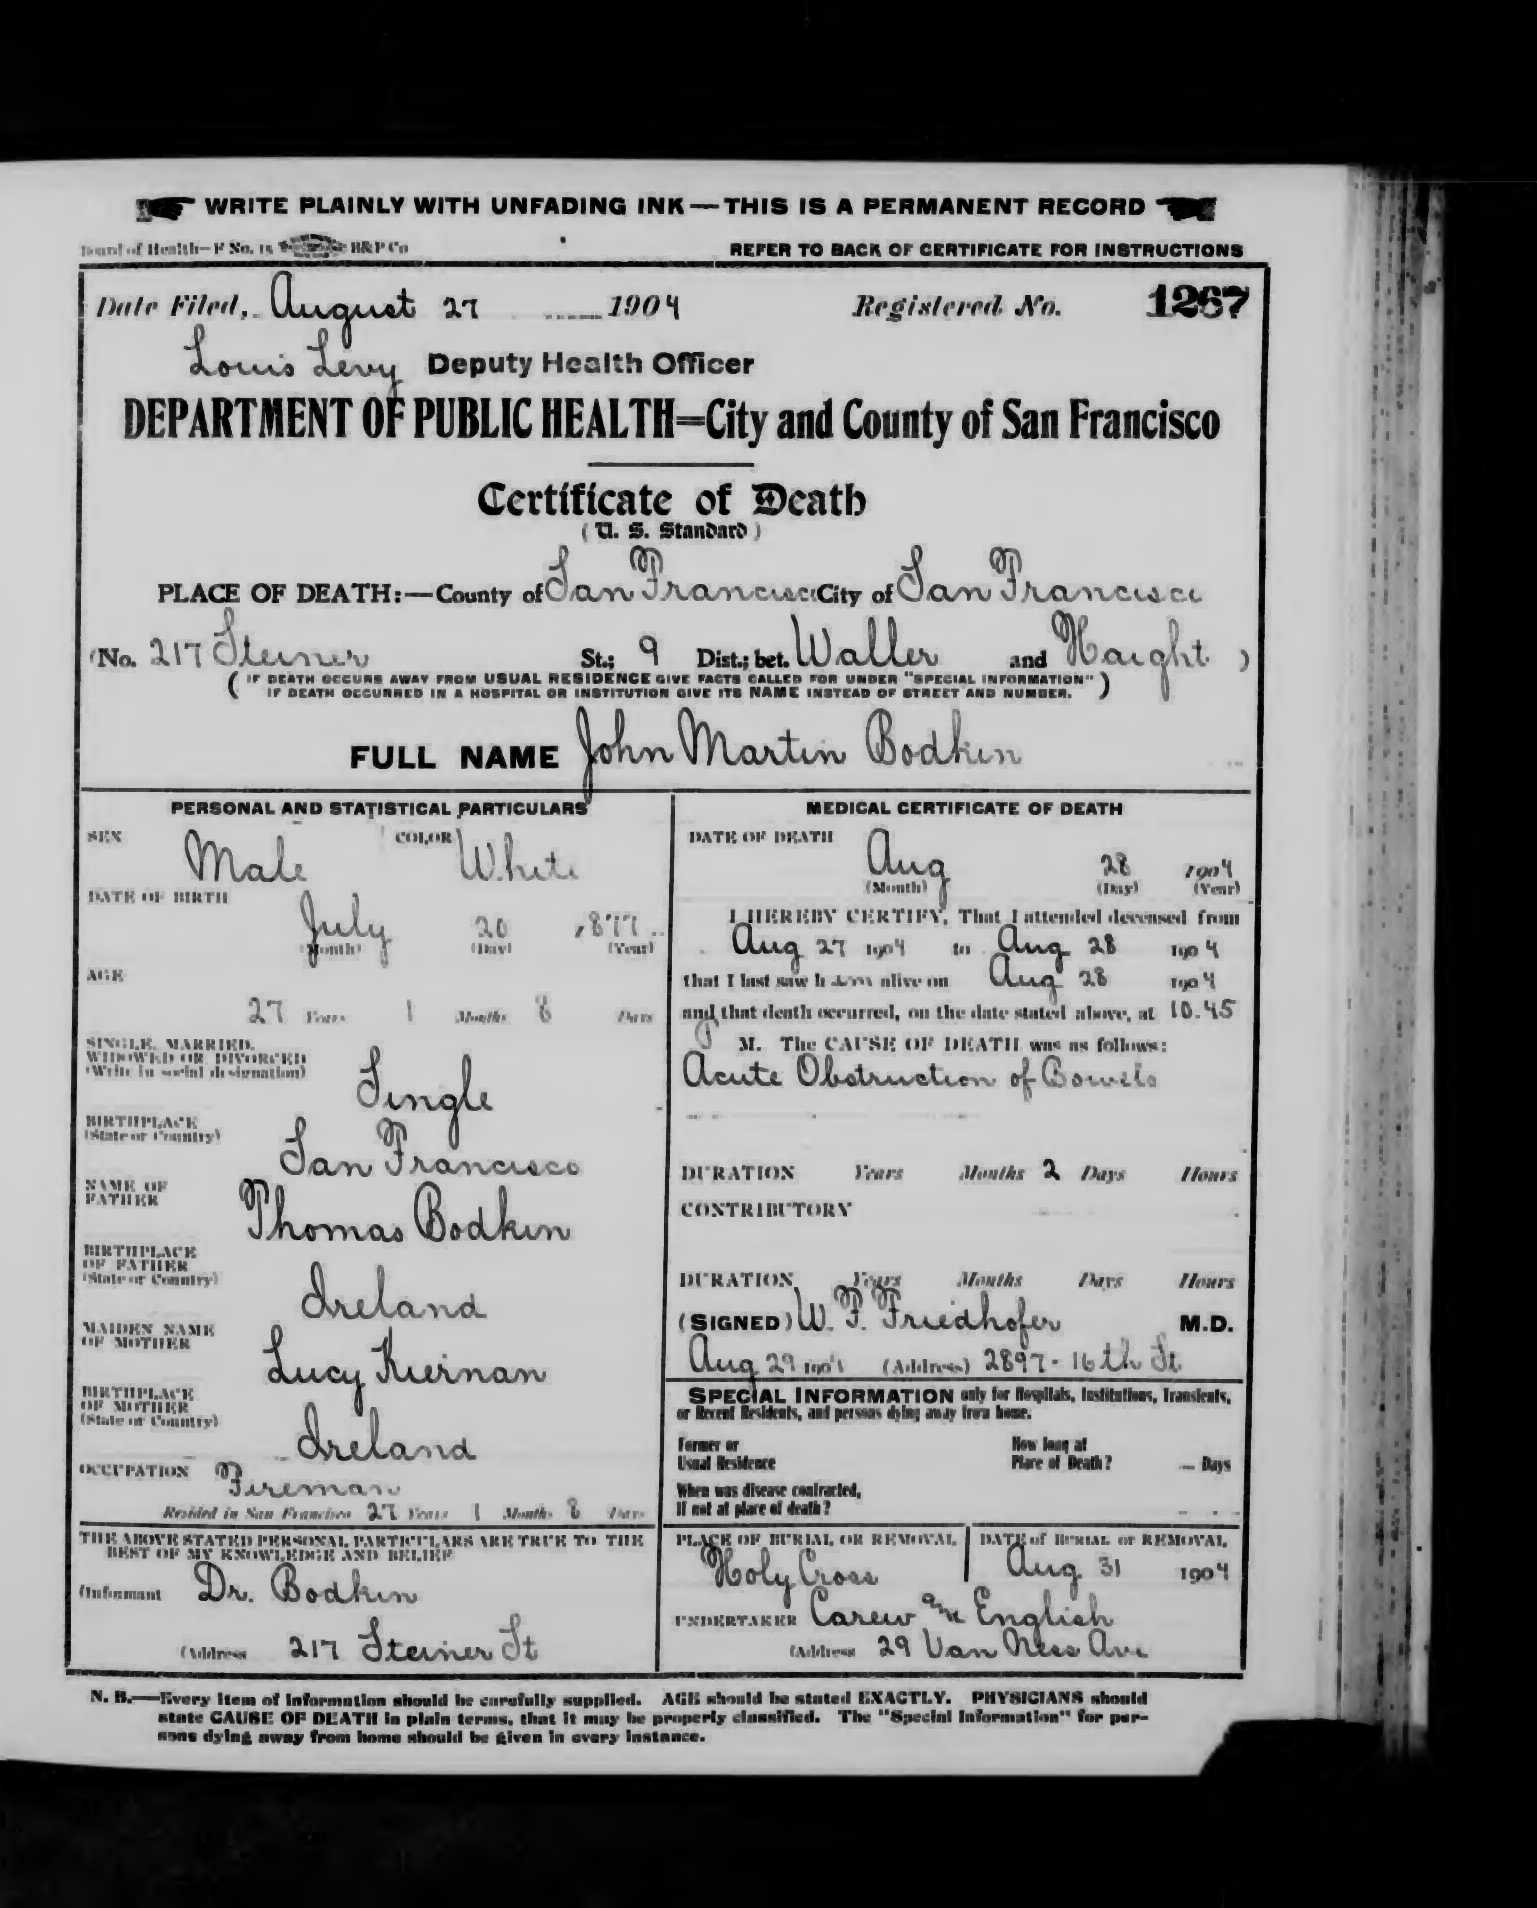 WRITE PLAINLY WITH UNFADING INK—THIS IS A PERMANENT RECORD
Board of Health—F No. 15 B&P Co
REFER TO BACK OF CERTIFICATE FOR INSTRUCTIONS
Date Filed, August 27 1904 Registered No. 1267
Louis Levy Deputy Health Officer
DEPARTMENT OF PUBLIC HEALTH=City and County of San Francisco
Certificate of Death
(U. S. Standard)
PLACE OF DEATH:—County of San Francisco City of San Francisco
(No. 217 Steiner St.; 9 Dist.; bet. Waller and Haight )
( IF DEATH OCCURS AWAY FROM USUAL RESIDENCE GIVE FACTS CALLED FOR UNDER "SPECIAL INFORMATION"
IF DEATH OCCURRED IN A HOSPITAL OR INSTITUTION GIVE ITS NAME INSTEAD OF STREET AND NUMBER. )
FULL NAME John Martin Bodkin
PERSONAL AND STATISTICAL PARTICULARS
SEX Male COLOR White
DATE OF BIRTH
July 20 1877
(Month) (Day) (Year)
AGE
27 Years 1 Months 8 Days
SINGLE, MARRIED,
WIDOWED OR DIVORCED
(Write in social designation)
Single
BIRTHPLACE
(State or Country)
San Francisco
NAME OF
FATHER
Thomas Bodkin
BIRTHPLACE
OF FATHER
(State or Country)
Ireland
MAIDEN NAME
OF MOTHER
Lucy Kiernan
BIRTHPLACE
OF MOTHER
(State or Country)
Ireland
OCCUPATION Fireman
Resided in San Francisco 27 Years 1 Months 8 Days
THE ABOVE STATED PERSONAL PARTICULARS ARE TRUE TO THE
BEST OF MY KNOWLEDGE AND BELIEF
(Informant Dr. Bodkin
(Address 217 Steiner St
MEDICAL CERTIFICATE OF DEATH
DATE OF DEATH
Aug 28 1904
(Month) (Day) (Year)
I HEREBY CERTIFY, That I attended deceased from
Aug 27 1904 to Aug 28 1904
that I last saw h im alive on Aug 28 1904
and that death occurred, on the date stated above, at 10.45
P M. The CAUSE OF DEATH was as follows:
Acute Obstruction of Bowels
DURATION Years Months 2 Days Hours
CONTRIBUTORY
DURATION Years Months Days Hours
(SIGNED) W. F. Friedhofer M.D.
Aug 29 1904 (Address) 2897-16th St
SPECIAL INFORMATION only for Hospitals, Institutions, Transients,
or Recent Residents, and persons dying away from home.
Former or
Usual Residence
How long at
Place of Death? Days
When was disease contracted,
If not at place of death?
PLACE OF BURIAL OR REMOVAL
Holy Cross
DATE of BURIAL or REMOVAL
Aug 31 1904
UNDERTAKER Carew and English
(Address 29 Van Ness Ave
N. B.—Every item of information should be carefully supplied. AGE should be stated EXACTLY. PHYSICIANS should
state CAUSE OF DEATH in plain terms, that it may be properly classified. The "Special Information" for per-
sons dying away from home should be given in every instance.